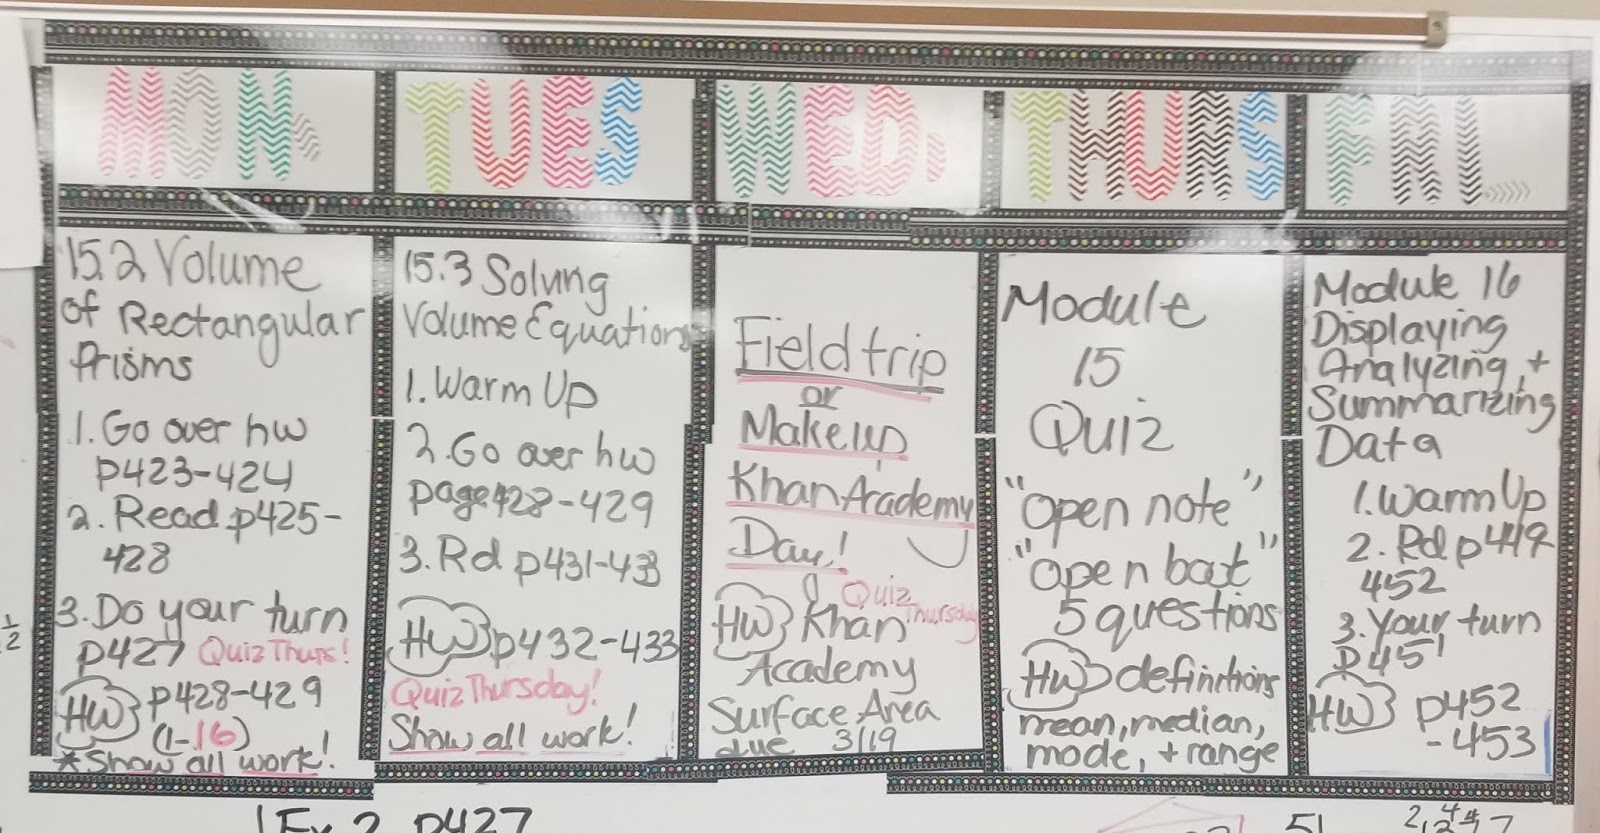 MON.
15.2 Volume
of Rectangular
Prisms
1. Go over hw
p423-424
2. Read p425-
428
3. Do your turn
p427 Quiz Thurs!
HW p428-429
(1-16)
*Show all work!
TUES
15.3 Solving
Volume Equations
1. Warm Up
2. Go over hw
page 428-429
3. Rd p431-433
HW p432-433
Quiz Thursday!
Show all work!
WED.
Field trip
or
Makeup
Khan Academy
Day!
Quiz Thursday
HW Khan
Academy
Surface Area
due 3/19
THURS
Module
15
Quiz
"open note"
"open
5 questions
HW definitions
mean, median,
mode, + range
FRI.
Module 16
Displaying
Analyzing, +
Summarizing
Data
1. Warm Up
2. Rd p449-
452
3. Your turn
p451
HW p452
-453
1/2
Ex 2 p427
51